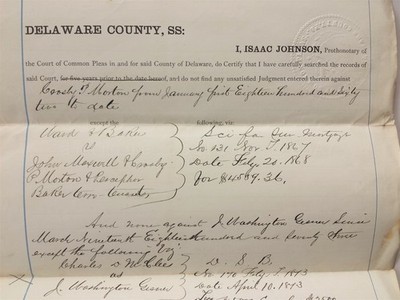 DELAWARE COUNTY, SS:
I, ISAAC JOHNSON, Prothonotary
of the Court of Common Pleas in and for said County of Delaware, do Certify that I have carefully searched the records of
said Court, for five years prior to the date hereof, and do not find any unsatisfied Judgment entered therein against
Crosby P Morton from January first Eighteen Hundred and Sixty
two to date
except the following, viz:
Ward & Baker Sci fa Sur Mortgage
vs No 131 Nov T. 1867
John Maxwell & Crosby Date Feby 20. 1868
P Morton & for $4589.36.
Baker terre tenants
And none against J. Washington Since
March Nineteenth Eighteen Hundred and Seventy
except the following Viz:
Charles D. D. S. B.
vs No 170 Feby T 1873
J. Washington Date April 10. 1873